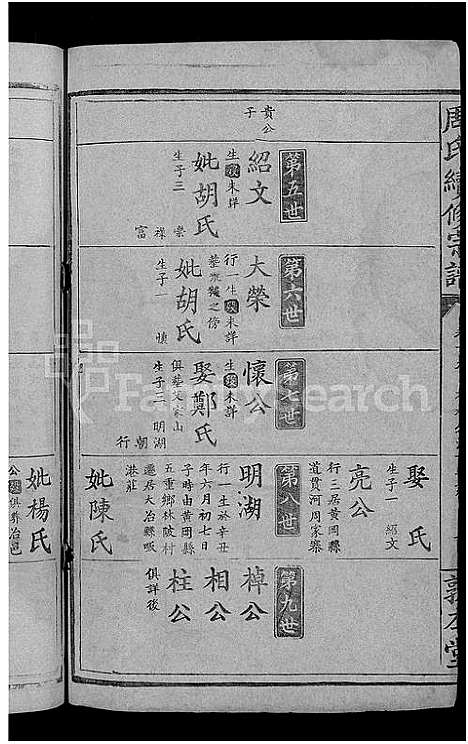 周氏續修宗譜
貴公子
第五世
紹文
生歿未詳
妣胡氏
生子三
榮
祥
富
第六世
大榮
行一生歿未詳
墓葬之傍
妣胡氏
生子一
慎
第七世
懷公
生歿未詳
娶鄭氏
俱墓艾家山
生子三
明湖
朝
行
娶 氏
生子一
紹文
亮公
行三居黃岡縣
道貫河周家寨
第八世
明湖
行一生於辛丑
年六月初七日
子時由黃岡縣
五重鄉林陂村
遷居大冶縣
港莊
妣陳氏
妣楊氏
公歿俱葬冶邑
第九世
棹公
相公
柱公
俱詳後
FamilySearch